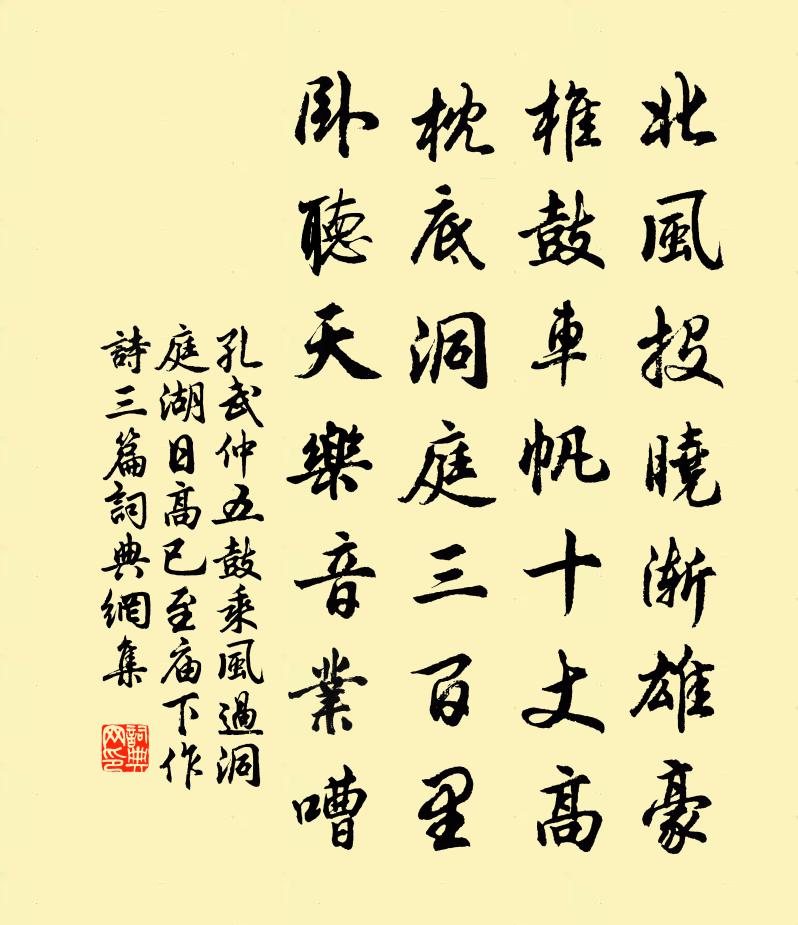 北風投曉漸雄豪
椎鼓車帆十丈高
枕底洞庭三百里
臥聽天樂音業嘈
孔武仲五鼓乘風過洞
庭湖日高已至庙下作
詩三篇詞典網集
詞典
网印